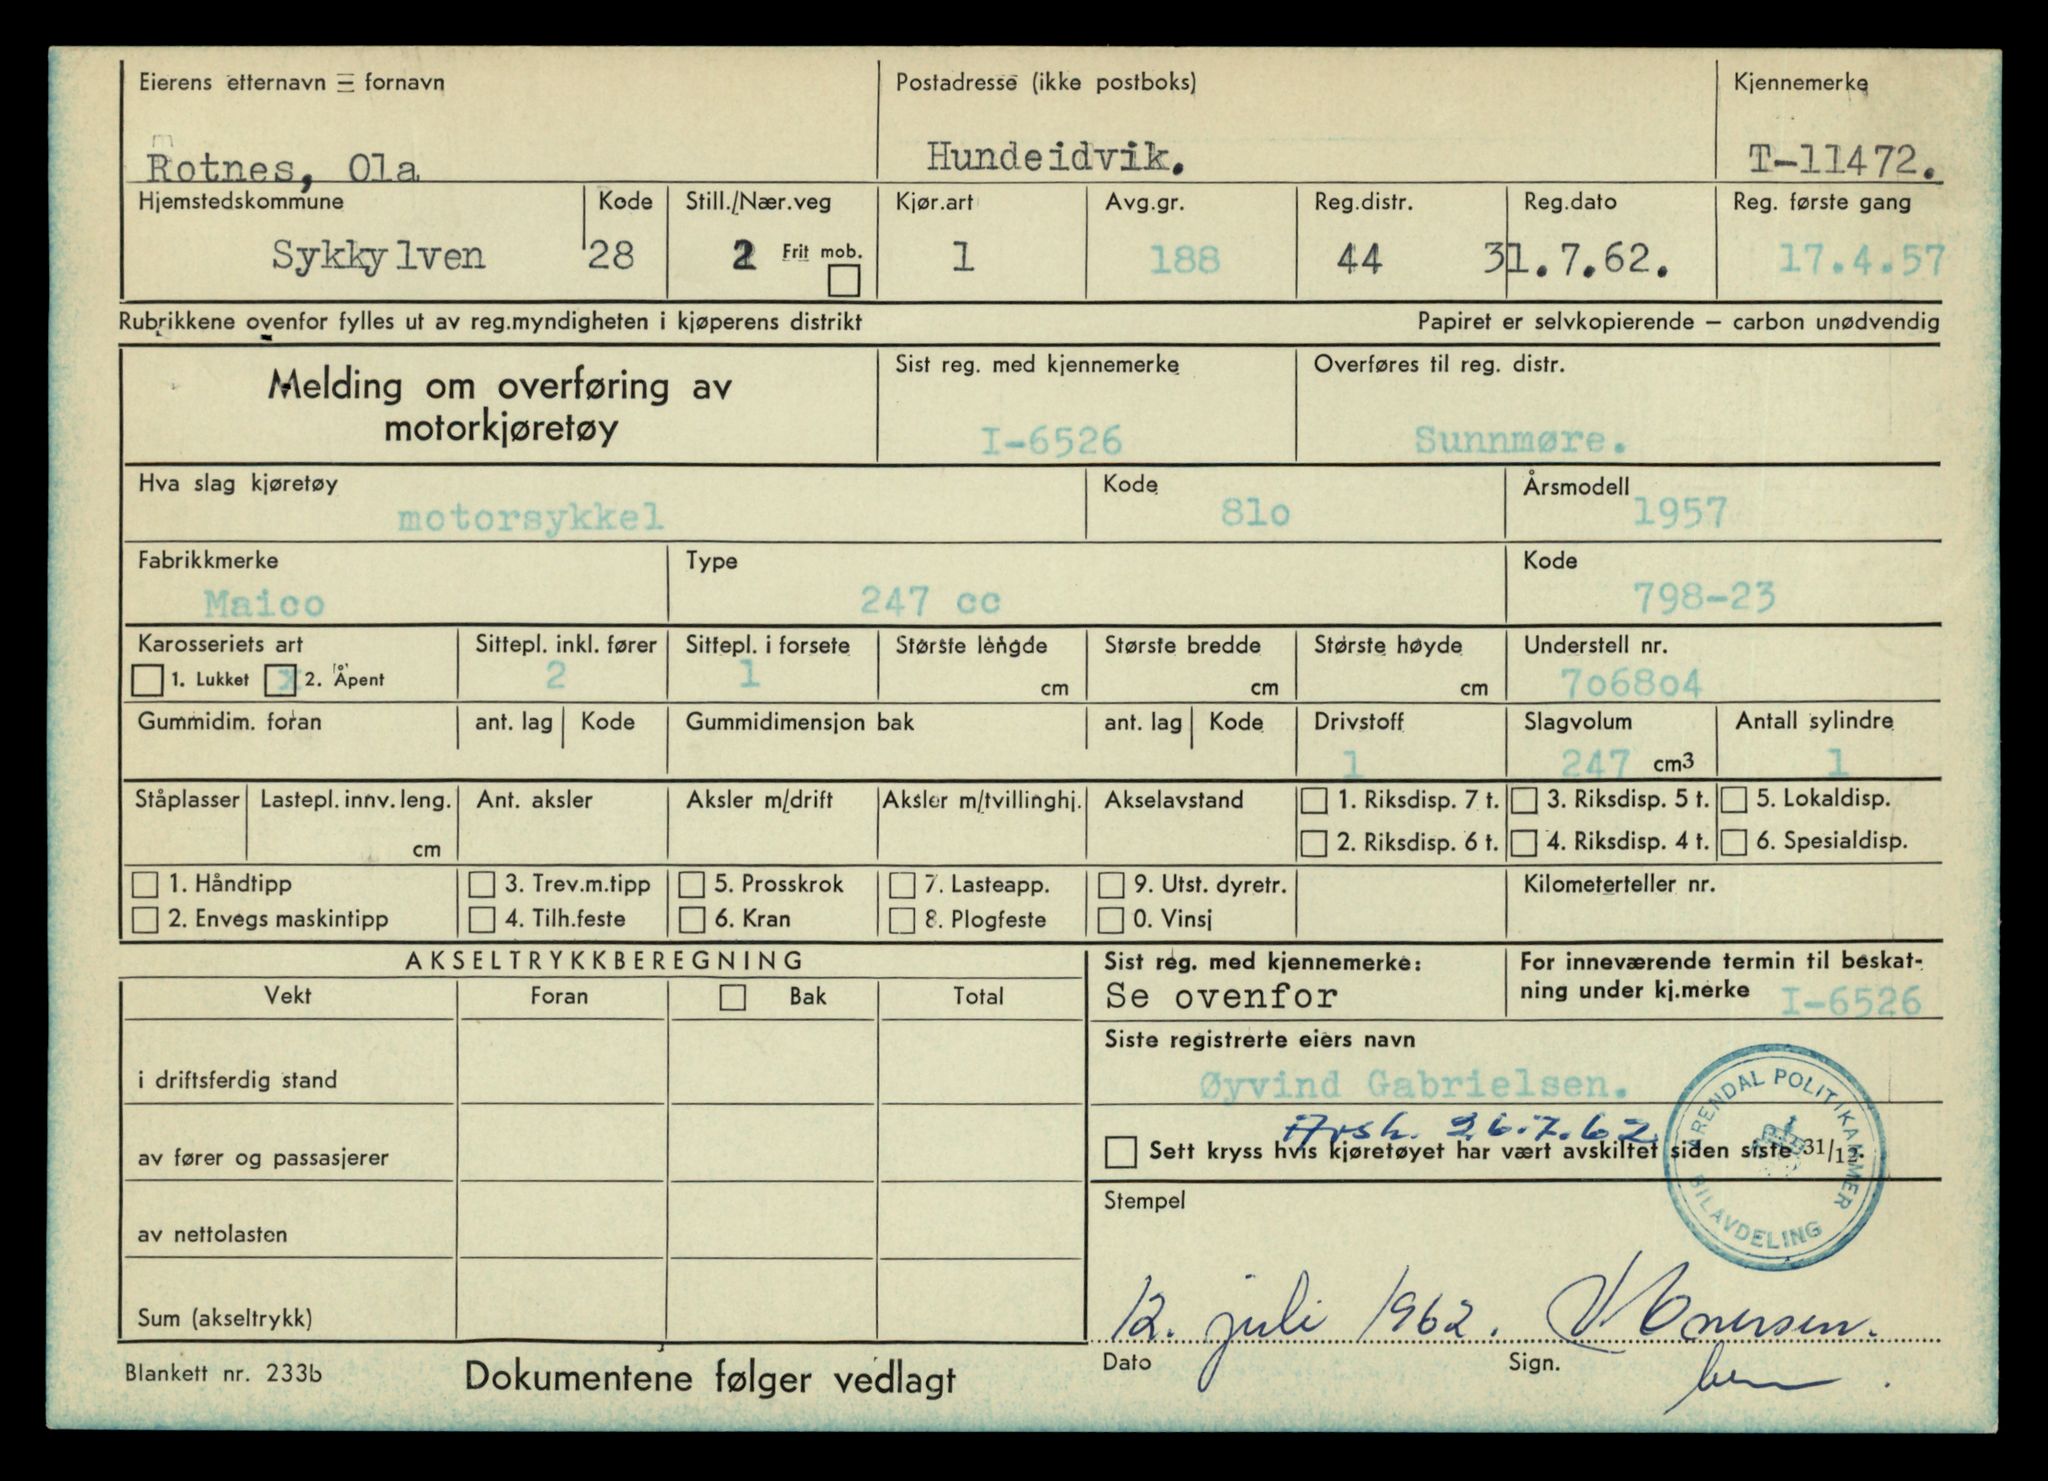 Eierens etternavn = fornavn
Postadresse (ikke postboks)
Kjennemerke
Rotnes, Ola
Hundeidvik.
T-11472.
Hjemstedskommune
Kode
Still./Nær.veg
Kjør.art
Avg.gr.
Reg.distr.
Reg.dato
Reg. første gang
Sykkylven
28
2
Frit mob.
1
188
44
31.7.62.
17.4.57
Rubrikkene ovenfor fylles ut av reg.myndigheten i kjøperens distrikt
Papiret er selvkopierende – carbon unødvendig
Melding om overføring av
motorkjøretøy
Sist reg. med kjennemerke
Overføres til reg. distr.
I-6526
Sunnmøre.
Hva slag kjøretøy
Kode
Årsmodell
motorsykkel
81o
1957
Fabrikkmerke
Type
Kode
Maico
247 cc
798-23
Karosseriets art
Sittepl. inkl. fører
Sittepl. i forsete
Største lengde
Største bredde
Største høyde
Understell nr.
1. Lukket
x
2. Åpent
2
1
cm
cm
cm
7o68o4
Gummidim. foran
ant. lag
Kode
Gummidimensjon bak
ant. lag
Kode
Drivstoff
Slagvolum
Antall sylindre
1
247 cm3
1
Ståplasser
Lastepl. innv. leng.
Ant. aksler
Aksler m/drift
Aksler m/tvillinghj.
Akselavstand
1. Riksdisp. 7 t.
3. Riksdisp. 5 t.
5. Lokaldisp.
cm
2. Riksdisp. 6 t.
4. Riksdisp. 4 t.
6. Spesialdisp.
1. Håndtipp
3. Trev.m.tipp
5. Prosskrok
7. Lasteapp.
9. Utst. dyretr.
Kilometerteller nr.
2. Envegs maskintipp
4. Tilh.feste
6. Kran
8. Plogfeste
0. Vinsj
AKSELTRYKKBEREGNING
Sist reg. med kjennemerke:
Se ovenfor
For inneværende termin til beskat-
ning under kj.merke I-6526
Vekt
Foran
Bak
Total
Siste registrerte eiers navn
Øyvind Gabrielsen.
i driftsferdig stand
26.7.62
av fører og passasjerer
Sett kryss hvis kjøretøyet har vært avskiltet siden siste 31/12.
ARENDAL POLITIKAMMER
BILAVDELING
Stempel
av nettolasten
Sum (akseltrykk)
12. juli 1962.
Dato
Sign.
Blankett nr. 233b
Dokumentene følger vedlagt